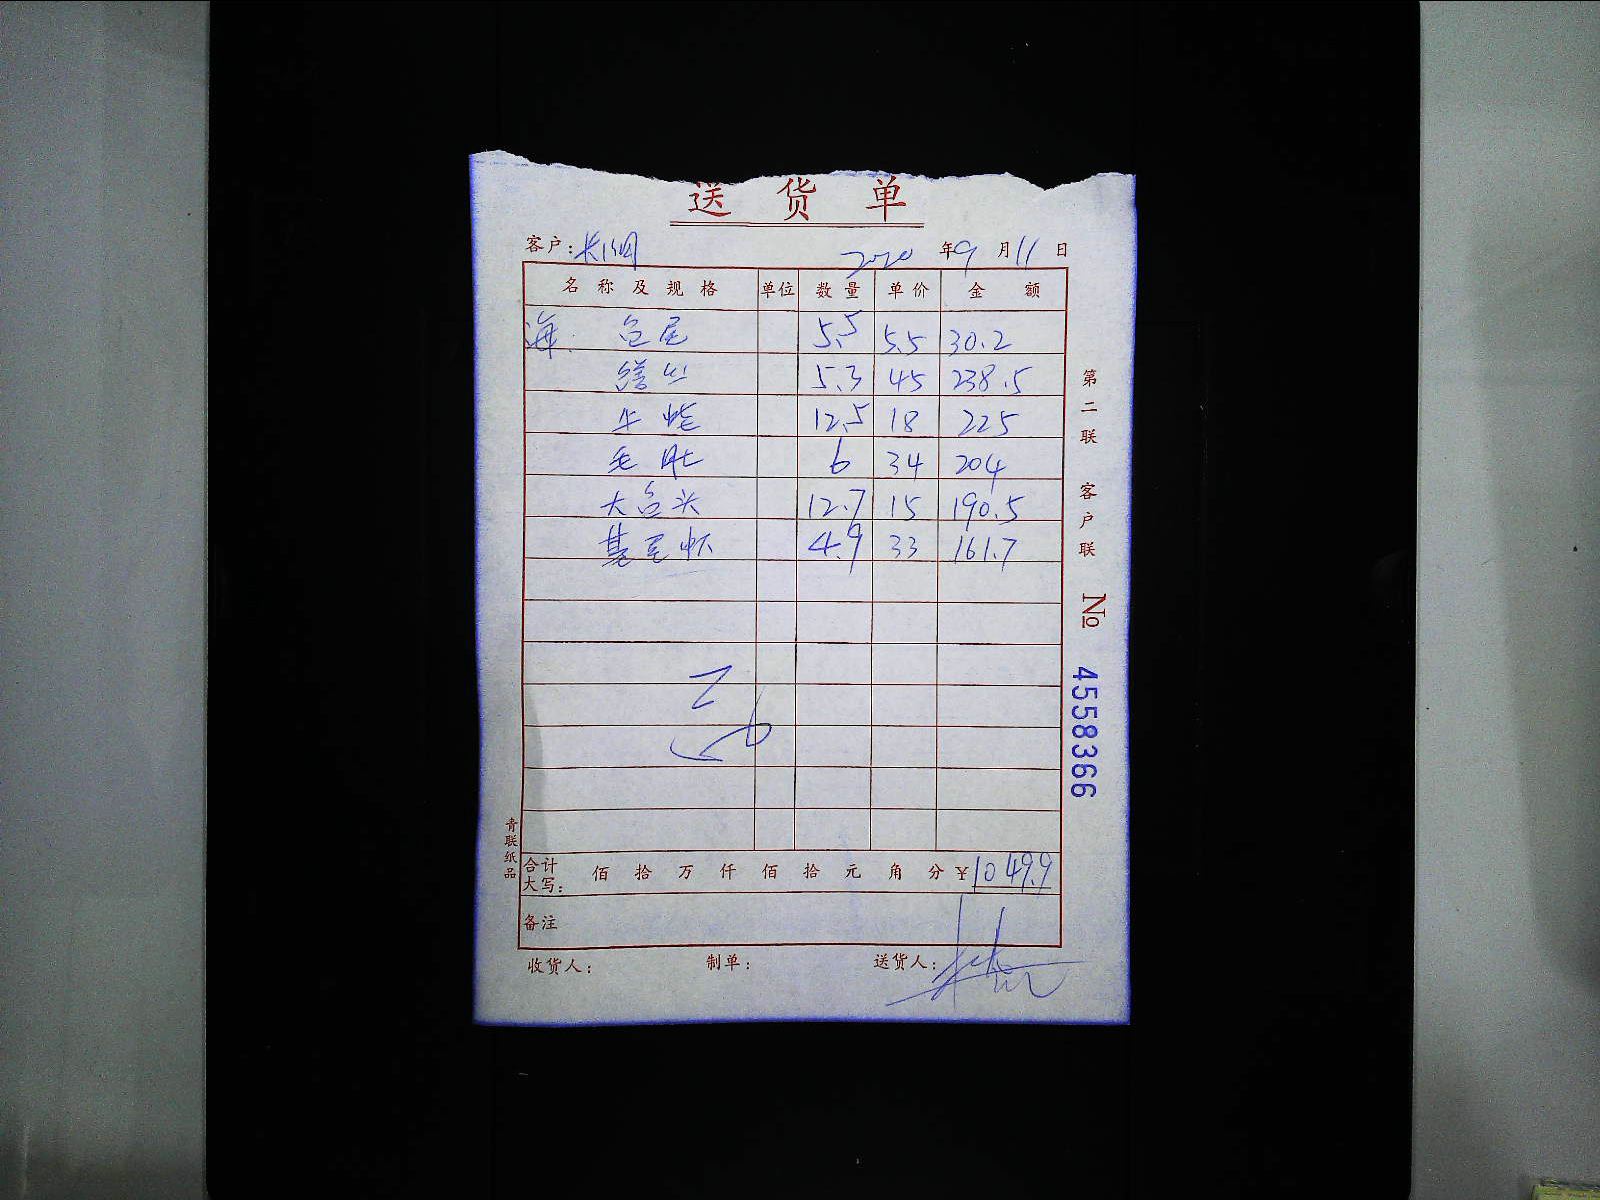 送货单
客户: 2020年9月11日
名称及规格 单位 数量 单价 金额
海: 5.5 5.5 30.2
5.3 45 238.5
牛蛙 12.5 18 225
毛肚 6 34 204
大鱼头 12.7 15 190.5
基尾虾 4.9 33 161.7
合计大写: 佰 拾 万 仟 佰 拾 元 角 分 ¥1049.9
备注
收货人: 制单: 送货人:
第二联 客户联 № 4558366
青联纸品